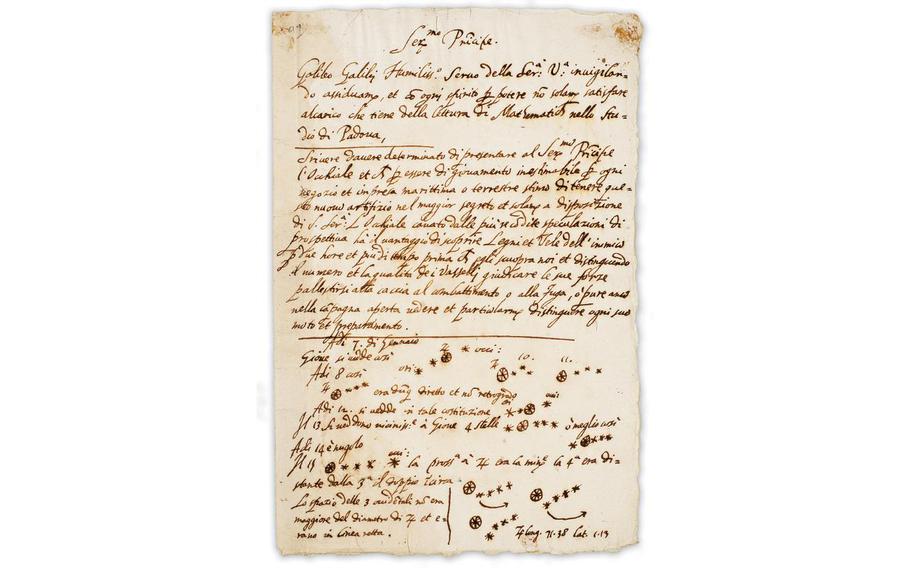 Ser.mo Principe.
Galileo Galilej Humiliss.o Servo della Ser.a V.a invigilan-
do assiduam.e, et cõ ogni spirito p potere nõ solam.e satisfare
alcarico che tiene della lettura di Mathematica nello Stu-
dio di Padova,
Scrivere davere determinato di presentare al Ser.mo Prĩcipe
l'Occhiale et p essere di giovamento inestimabile p ogni
negozio et impresa marittima o terrestre stimo di tenere que-
sto nuovo artifizio nel maggior segreto et solam.e a disposizione
di S. Ser.a L'Occhiale cavato dalle più recõdite speculazioni di
prospettiva hà il vantaggio di scoprire Legni et Vele dell'inimico
p due hore et più di tempo prima ch egli scuopra noi et distinguendo
il numero et la qualità dei Vasselli giudicare le sue forze
pallestirsi alla caccia al combattimento o alla fuga, ò pure anco
nella cãpagna aperta vedere et particolarm.e distinguere ogni suo
moto et preparamento.
Adi 7. di Gennaio
Gione si vedde così
occi:
Adi 8 così
ori:
10. 11.
era dũq diretto et nõ retrogrado
occi:
Adi 12. si vedde in tale costituzione
Il 13 si veddono vicinisse.e à Giove 4 stelle
ò meglio così
Adi 14 è nugolo
Il 15
occi:
la pross.a à ♃ era la min.e la 4.a era di-
stante dalla 3.a il doppio Ĩcirca
Lo spazio delle 3 occidẽtali nõ era
maggiore del diametro di ♃ et e-
rano in linea retta.
♃ long. 71.38 Lat. 1.13